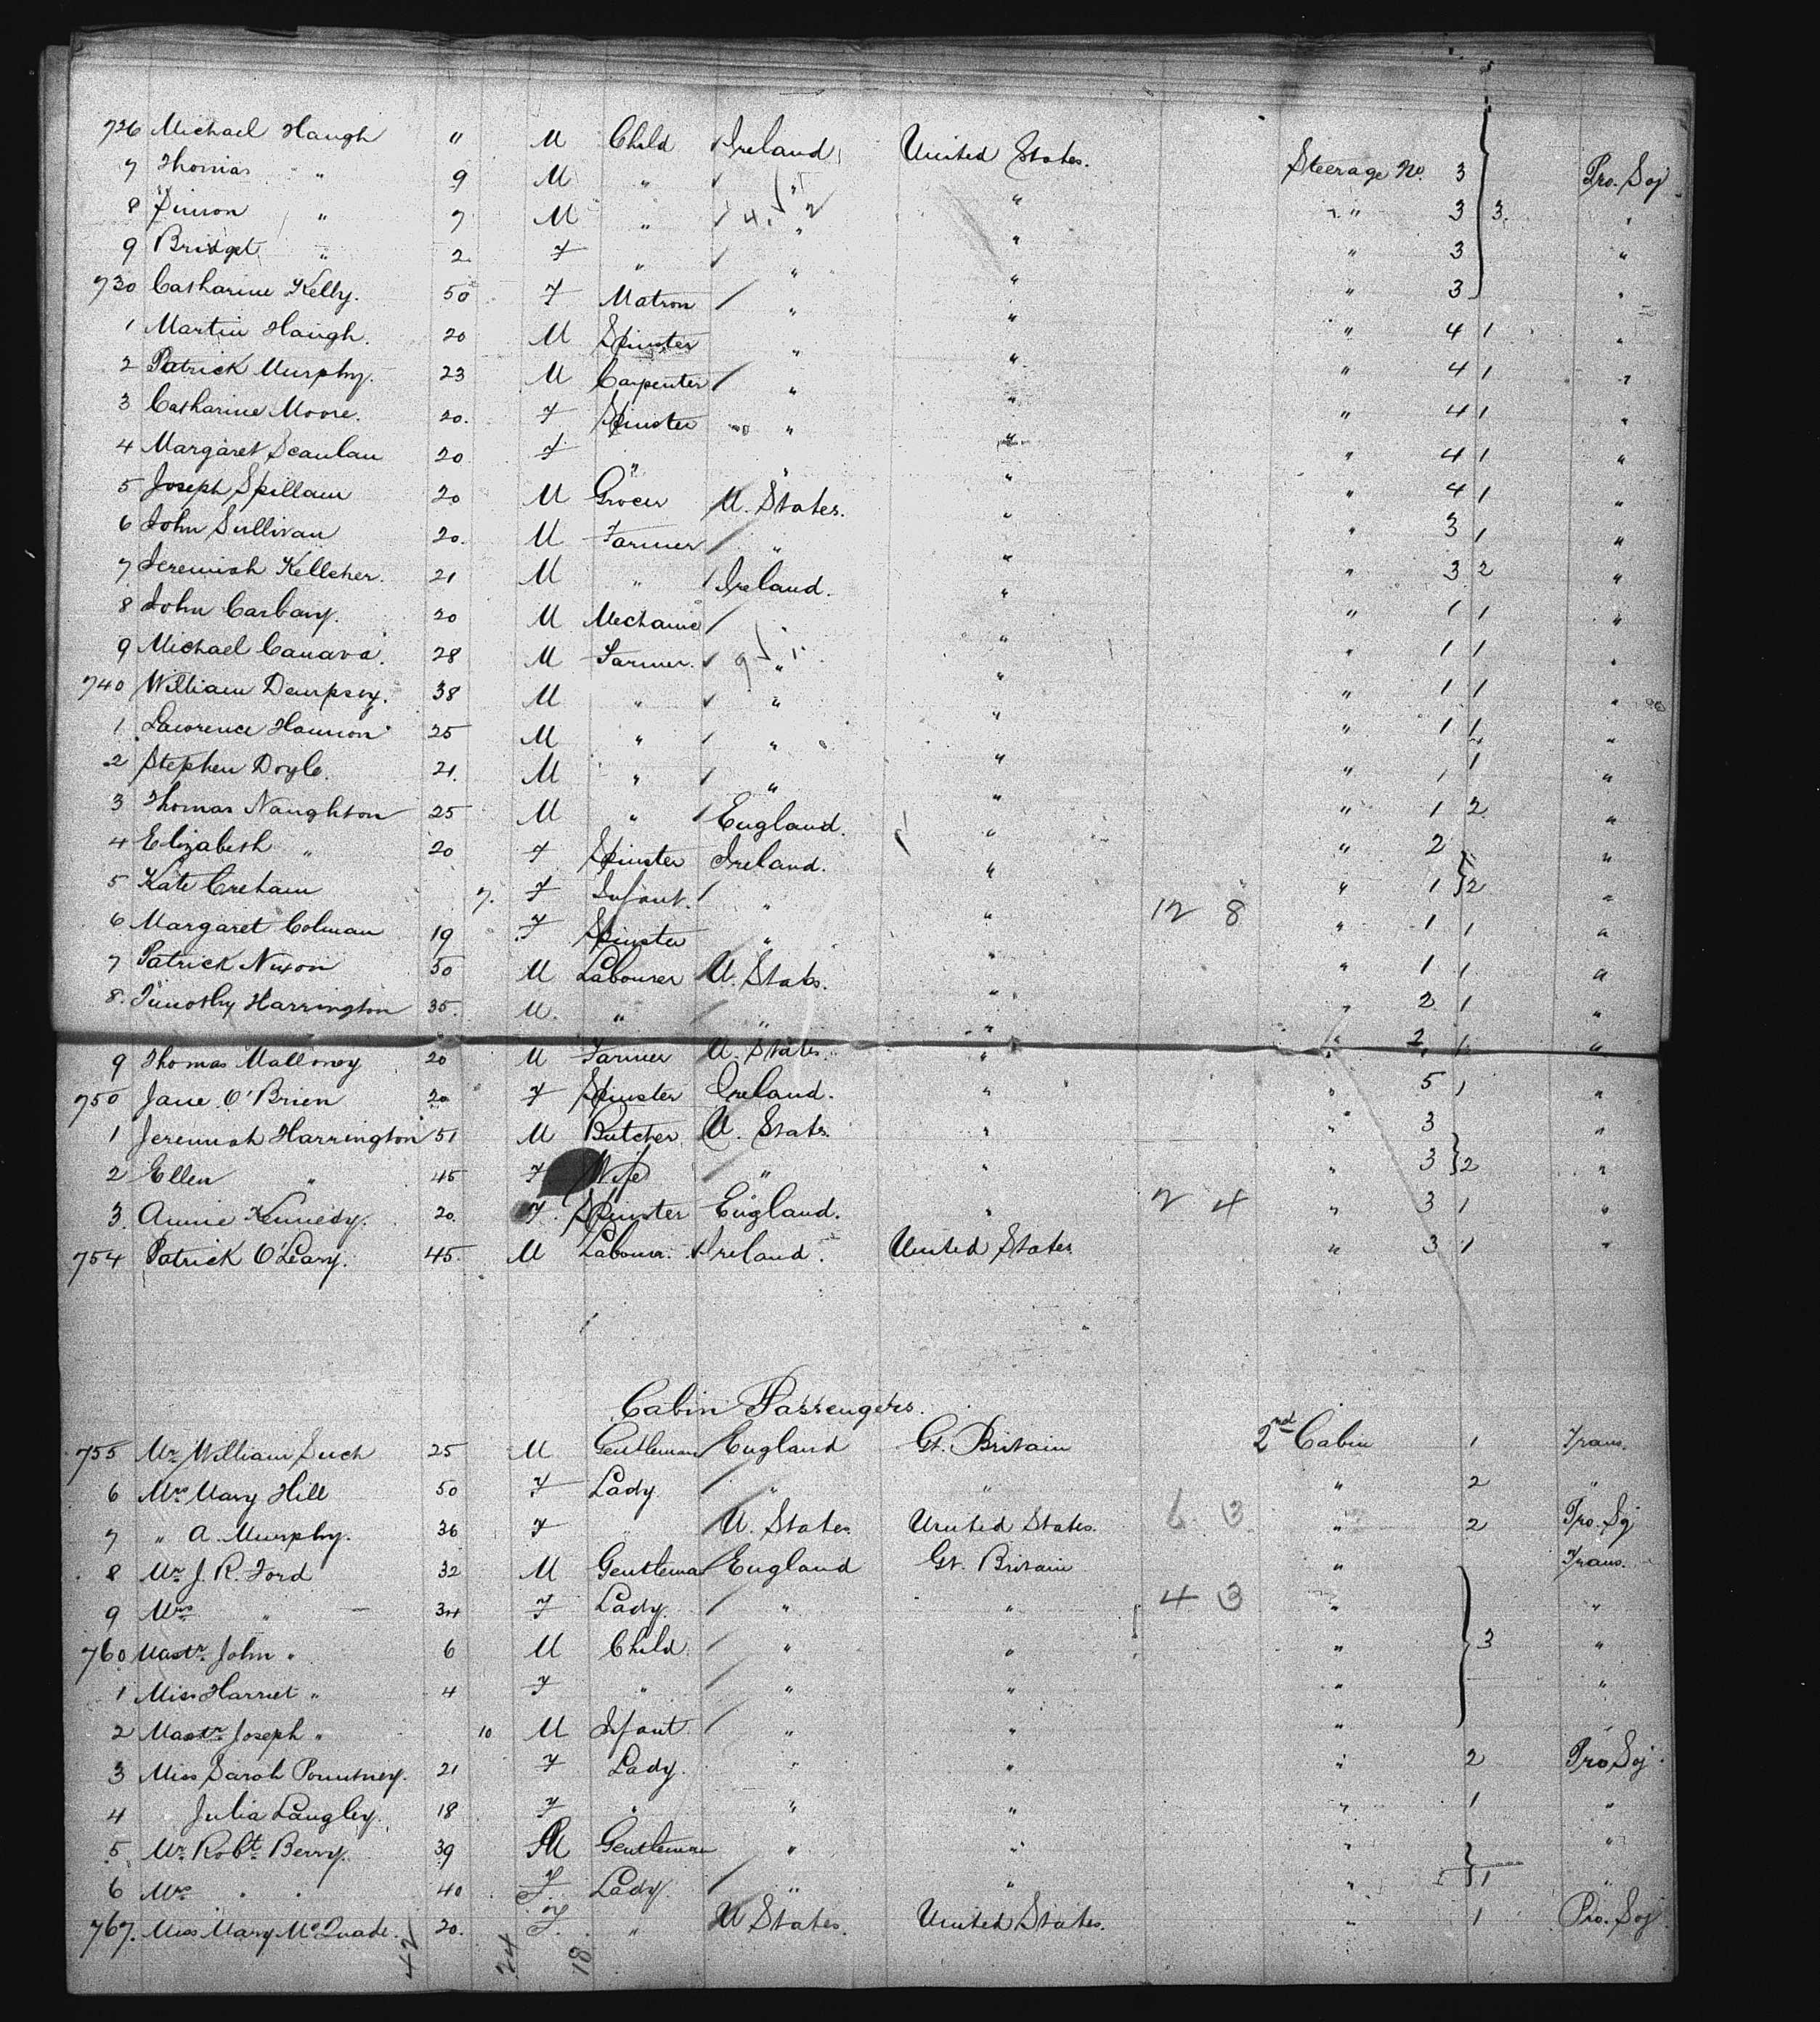 726 Michael Haugh " M Child Ireland United States. Steerage No. 3 Pro. Soj
7 Thomas " 9 M " " " " 3 3. "
8 Simon " 7 M " " " " 3 "
9 Bridget " 2 F " " " " 3 "
730 Catharine Kelly. 50 F Matron " " " 4 1 "
1 Martin Haugh. 20 M Spinster " " " 4 1 "
2 Patrick Murphy. 23 M Carpenter " " " 4 1 "
3 Catharine Moore. 20. F Spinster " " " 4 1 "
4 Margaret Scanlan 20 F " " " " 4 1 "
5 Joseph Spillain 20 M Grocer U. States. " " 3 1 "
6 John Sullivan 20. M Farmer " " " 3 2 "
7 Jeremiah Kelleher. 21 M " Ireland. " " 1 1 "
8 John Carbary. 20 M Mechanic " " " 1 1 "
9 Michael Canava. 28 M Farmer. " " " 1 1 "
740 William Dempsey. 38 M " " " " 1 1 "
1 Lawrence Hannon 25 M " " " " 1 1 "
2 Stephen Doyle. 21. M " " " " 1 2 "
3 Thomas Naughton 25 M " England. " " 2 "
4 Elizabeth " 20 F Spinster Ireland. " " 1 2 "
5 Kate Creham 7. F Infant. " " 12 8 " 1 1 "
6 Margaret Colman 19 F Spinster " " " 1 1 "
7 Patrick Nixon 50 M Labourer U. States. " " 2 1 "
8. Timothy Harrington 35. M. " " " " 2 1 "
9 Thomas Malloney 20 M Farmer U. States " " 5 1 "
750 Jane O'Brien 20 F Spinster Ireland. " " 3 "
1 Jeremiah Harrington 51 M Butcher U. States. " " 3 2 "
2 Ellen " 45 F Wife " " 2 4 " 3 1 "
3. Annie Kennedy. 20. F. Spinster England. " " 3 1 "
754 Patrick O'Leary. 45. M Labourer. Ireland. United States
Cabin Passengers.
755 Mr William Such 25 M Gentleman England Gt. Britain 2nd Cabin 1 Trans.
6 Mrs Mary Hill 50 F Lady " " " 2 "
7 " A. Murphy. 36 F " U. States United States. 6 3 " 2 Pro. Soj
8 Mr J. R. Ford 32 M Gentleman England Gt. Britain " Trans.
9 Mrs " 34 F Lady. " " 4 3 " "
760 Mastr. John " 6 M Child. " " " 3 "
1 Miss Harriet " 4 F " " " " "
2 Mastr. Joseph " 10 M Infant " " "
3 Miss Sarah Pountney. 21 F Lady. " " " 2 Pro Soj.
4 Julia Langley. 18 F " " " " 1 "
5 Mr Robt. Berry. 39 M Gentleman " " " "
6 Mrs " 40 F. Lady. " " " 1 "
767. Miss Mary McQuade. 20. F. " U States. United States. " 1 Pro. Soj.
42 24 18